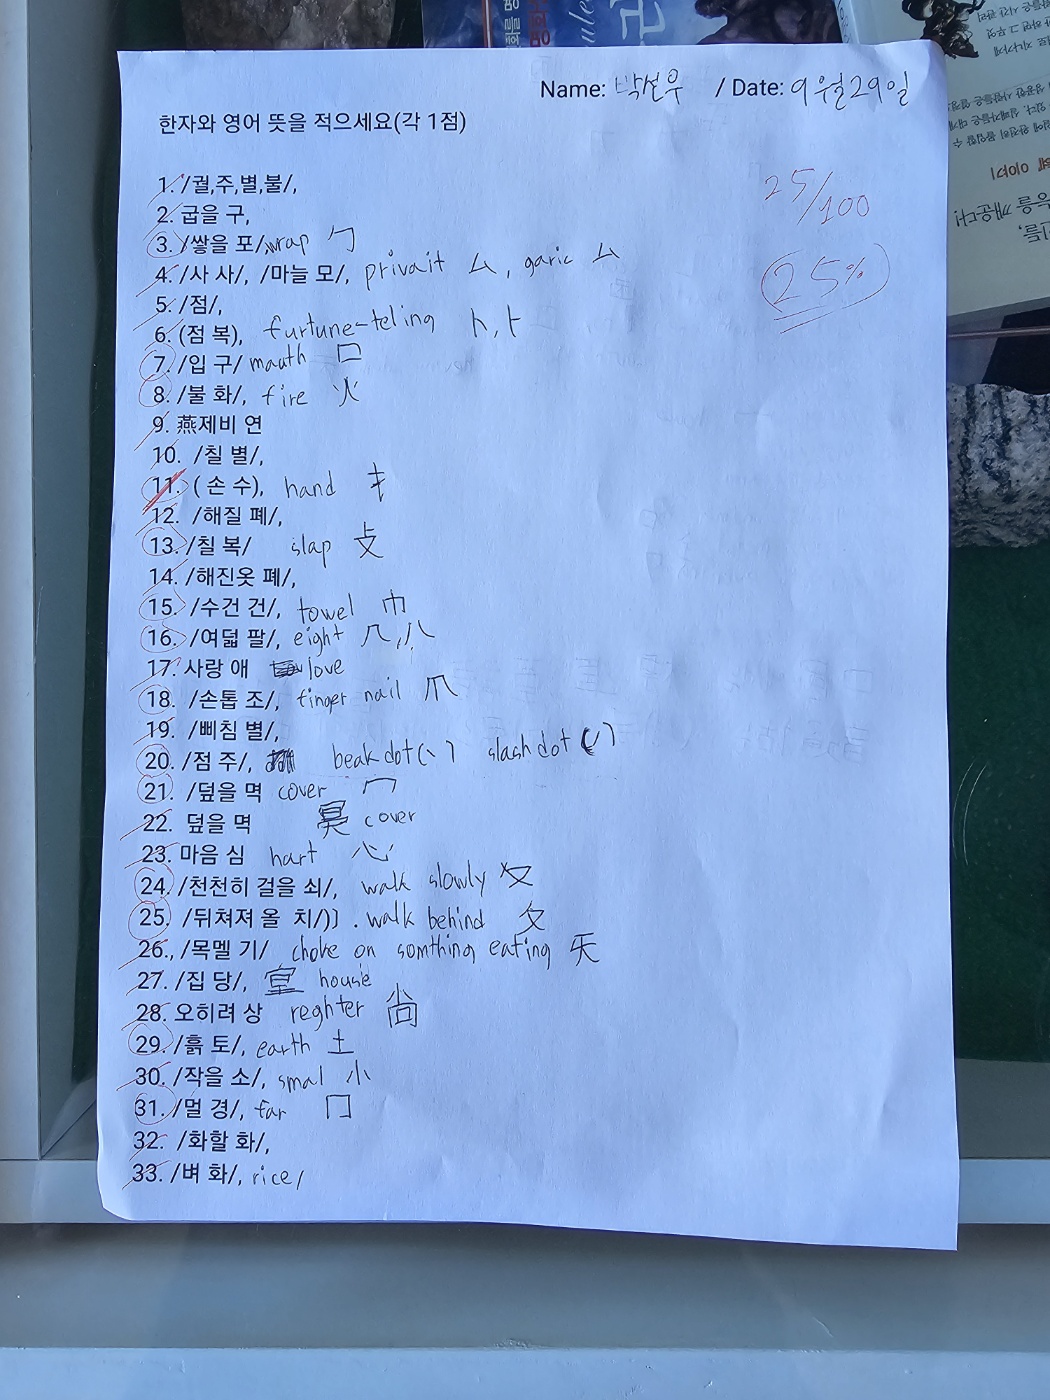 Name: 박선우 / Date: 9월29일
한자와 영어 뜻을 적으세요(각 1점)
25/100
25%
1. /궐,주,별,불/,
2. 굽을 구,
3. /쌓을 포/, wrap 勹
4. /사 사/, /마늘 모/, privait 厶, garic 厶
5. /점/,
6. (점 복), furtune-teling 卜,⺊
7. /입 구/ mauth 口
8. /불 화/, fire 火
9. 燕제비 연
10. /칠 별/,
11. ( 손 수), hand 扌
12. /해질 폐/,
13. /칠 복/ slap 攴
14. /해진옷 폐/,
15. /수건 건/, towel 巾
16. /여덟 팔/, eight 八,八
17. 사랑 애 love
18. /손톱 조/, finger nail 爪
19. /삐침 별/,
20. /점 주/, beak dot(丶) slash dot
21. /덮을 멱 cover 冖
22. 덮을 멱 cover
23. 마음 심 hart 心
24. /천천히 걸을 쇠/, walk slowly 夊
25. /뒤쳐져 올 치/)〕. walk behind 夂
26., /목멜 기/ choke on somthing eating 旡
27. /집 당/, house
28. 오히려 상 reghter 尙
29. /흙 토/, earth 土
30. /작을 소/, smal 小
31. /멀 경/, far 冂
32. /화할 화/,
33. /벼 화/, rice/